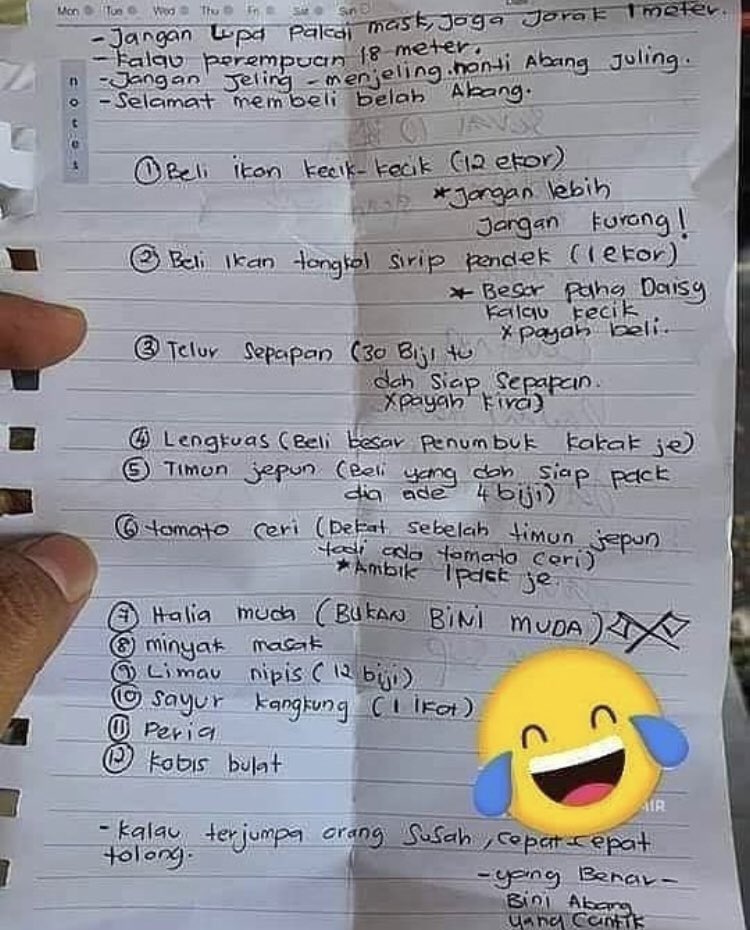 Mon Tue Wed Thu Fri Sat Sun
- Jangan Lupa Pakai mask, Jaga Jarak 1 meter.
- kalau perempuan 18 meter.
- Jangan Jeling - menjeling. nanti Abang Juling.
- Selamat membeli belah Abang.
notes
① Beli ikan kecik-kecik (12 ekor)
* Jangan lebih
Jangan kurang!
② Beli Ikan tongkol sirip pendek (1 ekor)
* Besar Paha Daisy
kalau kecik
x payah beli.
③ Telur Sepapan (30 Biji tu
dah Siap Sepapan.
xpayah kira)
④ Lengkuas (Beli besar Penumbuk kakak je)
⑤ Timun jepun (Beli yang dah siap pack
dia ade 4 biji)
⑥ tomato ceri (Dekat sebelah timun jepun
tadi ada tomato ceri)
* Ambik 1 pack je.
⑦ Halia muda (BUKAN BINI MUDA)
⑧ minyak masak
⑨ Limau nipis (12 biji)
⑩ Sayur kangkung (1 ikat)
⑪ Peria
⑫ kobis bulat
- kalau terjumpa orang Susah, cepat-cepat
tolong.
- yang Benar -
Bini Abang
yang Cantik